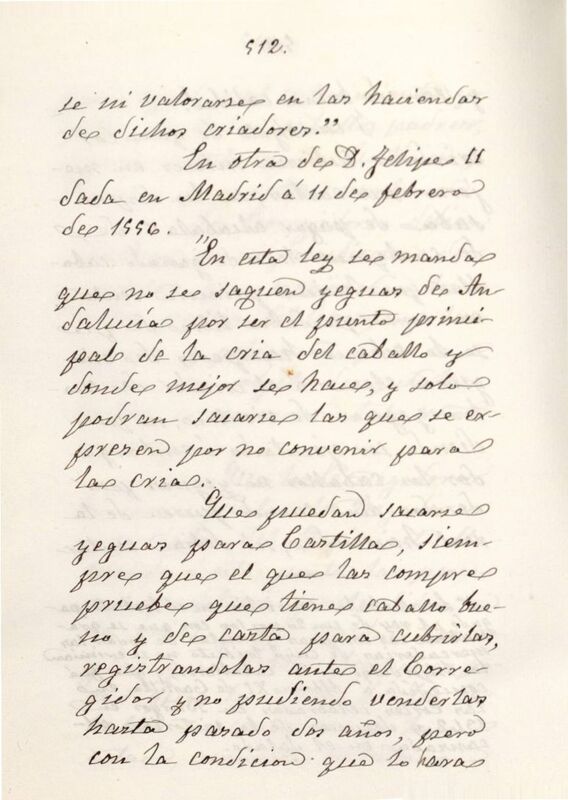 512.
se ni valorarse en las haciendas
de dichos criadores."
En otra de D. Felipe II
dada en Madrid á 11 de febrero
de 1556.
"En esta ley se manda
que no se saquen yeguas de An
dalucía por ser el punto princi-
pal de la cria del caballo y
donde mejor se hace, y solo
podran sacarse las que se ex-
presen por no convenir para
la cria.
Que puedan sacarse
yeguas para Castilla, siem-
pre que el que las compre
pruebe que tiene caballo bue-
no y de casta para cubrirlas,
registrandolas ante el Corre
gidor y no pudiendo venderlas
hasta pasado dos años, pero
con la condicion que lo hara